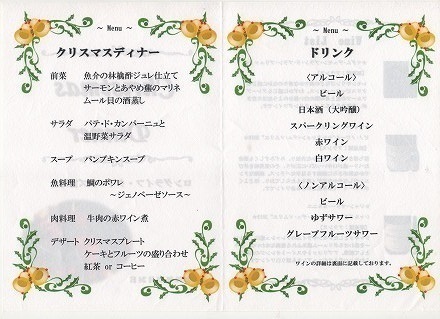 ~ Menu ~
クリスマスディナー
前菜 魚介の林檎酢ジュレ仕立て
サーモンとあやめ蕪のマリネ
ムール貝の酒蒸し
サラダ パテ・ド・カンパーニュと
温野菜サラダ
スープ パンプキンスープ
魚料理 鯛のポワレ
～ジェノベーゼソース～
肉料理 牛肉の赤ワイン煮
デザート クリスマスプレート
ケーキとフルーツの盛り合わせ
紅茶 or コーヒー
~ Menu ~
ドリンク
〈アルコール〉
ビール
日本酒（大吟醸）
スパークリングワイン
赤ワイン
白ワイン
〈ノンアルコール〉
ビール
ゆずサワー
グレープフルーツサワー
ワインの詳細は裏面に記載しております。